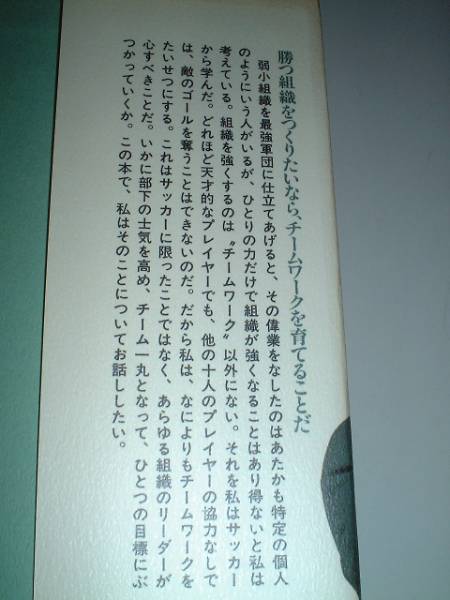 勝つ組織をつくりたいなら、チームワークを育てることだ
弱小組織を最強軍団に仕立てあげると、その偉業をなしたのはあたかも特定の個人
のようにいう人がいるが、ひとりの力だけで組織が強くなることはあり得ないと私は
考えている。組織を強くするのは〝チームワーク〟以外にない。それを私はサッカー
から学んだ。どれほど天才的なプレイヤーでも、他の十人のプレイヤーの協力なしで
は、敵のゴールを奪うことはできないのだ。だから私は、なによりもチームワークを
たいせつにする。これはサッカーに限ったことではなく、あらゆる組織のリーダーが
心すべきことだ。いかに部下の士気を高め、チーム一丸となって、ひとつの目標にぶ
つかっていくか。この本で、私はそのことについてお話ししたい。